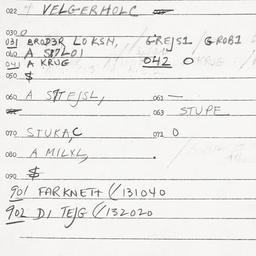 022 VELGERHOLC
030 O
031 BRODER LOKSN, GREJS1 / GROB1
040 A S
041 A KRUG 042 O
050 $
060 A STEJSL, 061 —
063 STUPE
070 STUKA,C 071 O
080 A MILXL,
090 $
901 FARKNETT (/131040
902 DI TEJG (/132020